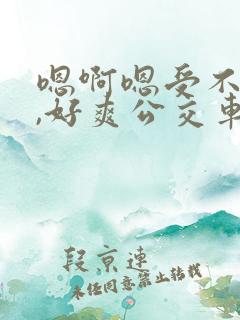 嗯啊嗯受不
,好爽公交车
段京连
未任同意禁止转载